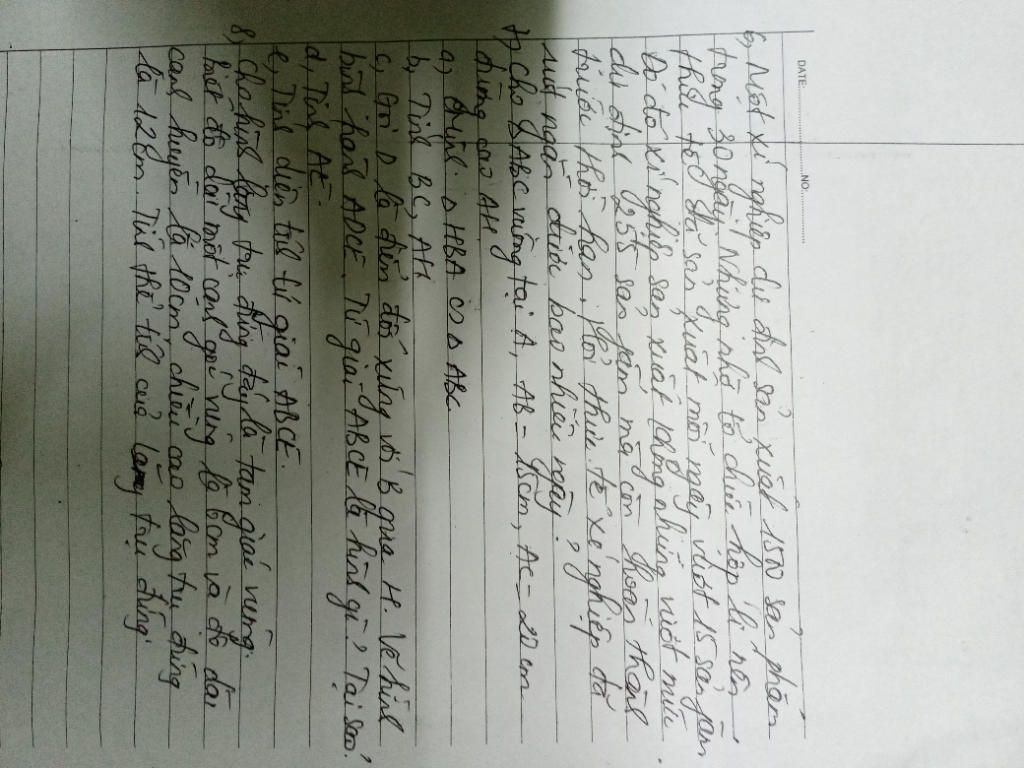 DATE: NO.
6, Một xí nghiệp dự định sản xuất 1500 sản phẩm
trong 30 ngày. Nhưng nhờ tổ chức hợp lí nên
thực tế đã sản xuất mỗi ngày vượt 15 sản phẩm.
Do đó xí nghiệp sản xuất không những vượt mức
dự định 255 sản phẩm mà còn hoàn thành
trước thời hạn. Hỏi thực tế xí nghiệp đã
rút ngắn được bao nhiêu ngày?
7, cho ΔABC vuông tại A, AB = 15cm, AC = 20cm
đường cao AH
a, ΔHBA ∽ ΔABC
b, Tính BC, AH
c, Gọi D là điểm đối xứng với B qua H. Vẽ hình
bình hành ADCE. Tứ giác ABCE là hình gì? Tại sao?
d, Tính AE.
e, Tính diện tích tứ giác ABCE.
8, Cho hình lăng trụ đứng đáy là tam giác vuông.
biết độ dài một cạnh góc vuông là 6cm và độ dài
cạnh huyền là 10cm, chiều cao lăng trụ đứng
là 12cm. Tính thể tích của lăng trụ đứng.